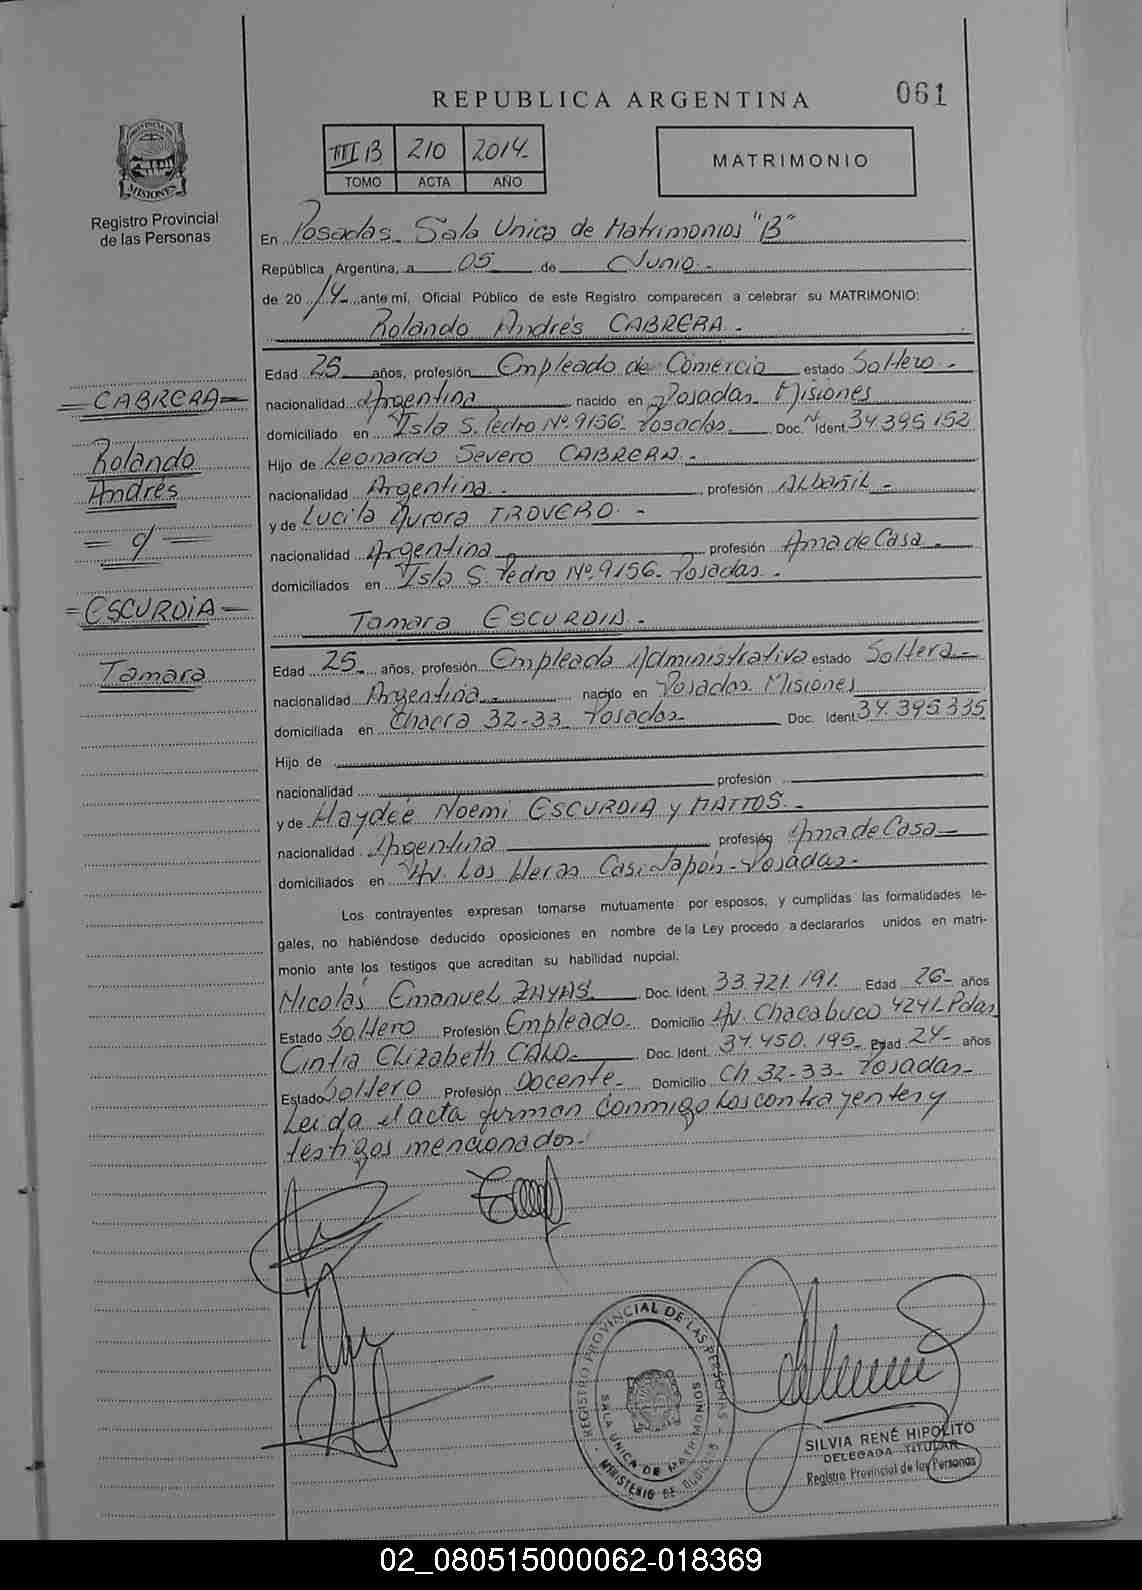 REPUBLICA ARGENTINA
061
PROVINCIA DE
MISIONES
Registro Provincial
de las Personas
III B 210 2014-
TOMO ACTA AÑO
MATRIMONIO
En Posadas- Sala Unica de Matrimonios "B"
República Argentina, a 05 de Junio -
de 20 14- ante mí, Oficial Público de este Registro comparecen a celebrar su MATRIMONIO:
Rolando Andrés CABRERA -
Edad 25 años, profesión Empleado de Comercio estado Soltero -
nacionalidad Argentina nacido en Posadas Misiones
domiciliado en Isla S. Pedro Nº 9156- Posadas- Doc. Ident. 34.395.152
Hijo de Leonardo Severo CABRERA -
nacionalidad Argentina - profesión Albañil -
y de Lucila Aurora TROVERO -
nacionalidad Argentina profesión Ama de Casa -
domiciliados en Isla S. Pedro Nº 9156- Posadas -
CABRERA
Rolando
Andrés
= c/ =
=ESCURDIA=
Tamara
Tamara ESCURDIA -
Edad 25 años, profesión Empleada Administrativa estado Soltera-
nacionalidad Argentina - nacido en Posadas Misiones
domiciliada en Chacra 32-33- Posadas- Doc. Ident. 34.395.335
Hijo de
nacionalidad profesión
y de Haydée Noemi ESCURDIA y MATTOS -
nacionalidad Argentina profesión Ama de Casa-
domiciliados en Av. Las Heras Casi Japón- Posadas-
Los contrayentes expresan tomarse mutuamente por esposos, y cumplidas las formalidades le-
gales, no habiéndose deducido oposiciones en nombre de la Ley procedo a declararlos unidos en matri-
monio ante los testigos que acreditan su habilidad nupcial.
Nicolás Emanuel ZAYAS Doc. Ident. 33.721.191. Edad 26- años
Estado Soltero Profesión Empleado- Domicilio Av. Chacabuco 4241-Pdas
Cintia Elizabeth CALO- Doc. Ident. 34.450.195- Edad 24- años
Estado Soltero Profesión Docente- Domicilio Ch. 32-33- Posadas-
Leida el acta firman conmigo los contrayentes y
testigos mencionados-
REGISTRO PROVINCIAL DE LAS PERSONAS
SALA UNICA DE MATRIMONIOS
MINISTERIO DE GOBIERNO
SILVIA RENÉ HIPOLITO
DELEGADA TITULAR
Registro Provincial de las Personas
02_080515000062-018369